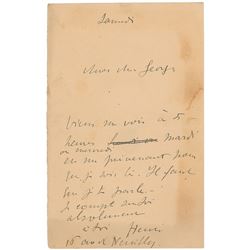 Samedi
Mon cher Georges
Viens me voir à 5
heures mardi
ou mercredi
en me prévenant pour
que je sois là. Il faut
que je te parle.
Je compte sur toi
absolument
à toi Henri
16 av de Neuilly